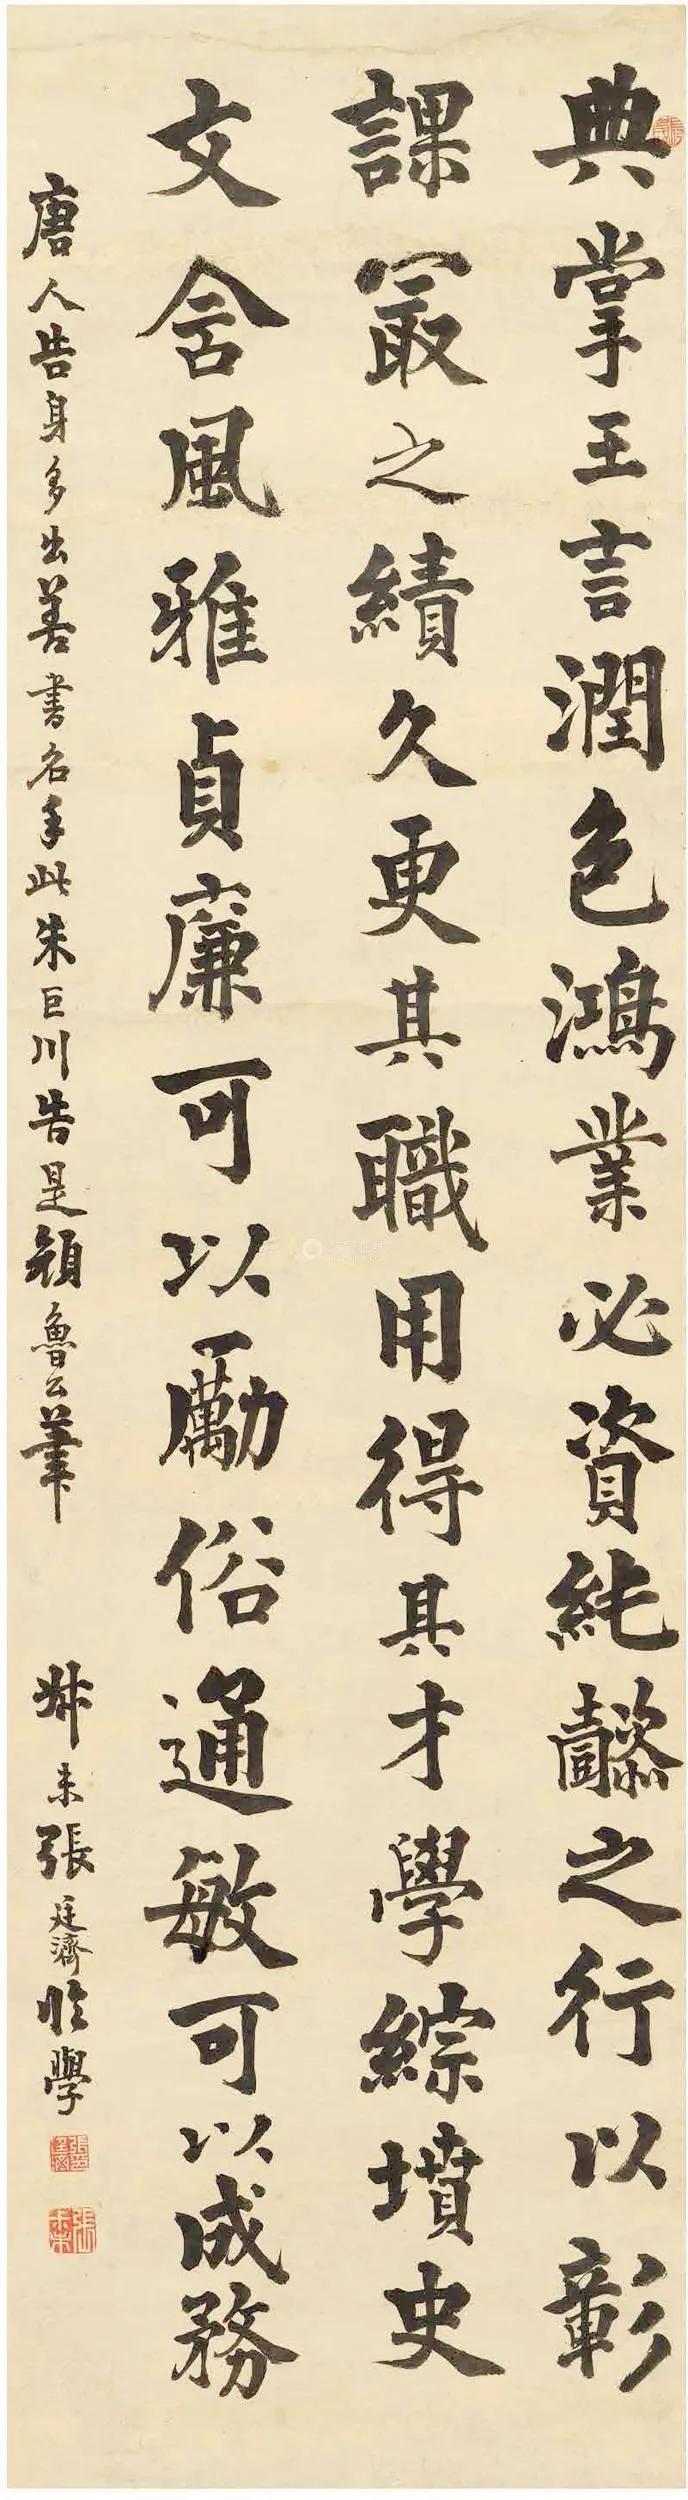 典掌王言潤色鴻業必資純懿之行以彰
課冣之績久更其職用得其才學綜墳史
文含風雅貞廉可以勵俗通敏可以成務
唐人告身多出善書名手此朱巨川告是顔魯公筆
叔未張廷濟臨學